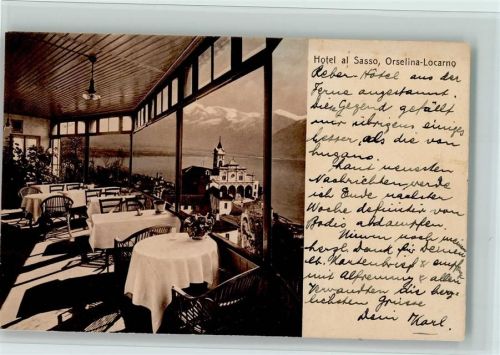 Hotel al Sasso, Orselina-Locarno
Reber-Hôtel aus der
Ferne angestaunt.
Diese Gegend gefällt
mir übrigens einiges
besser, als die von
Lugano.
Laut neuesten
Nachrichten werde
ich Ende nächster
Woche definitiv von
Bodio abdampfen.
Nimm noch meinen
herzl. Dank für deinen
lb. Kartenbrief & empf
mit & allen
Verwandten die herz-
lichsten Grüsse
Dein Karl.